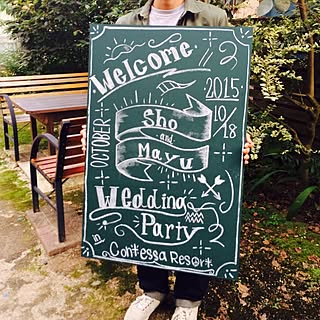 Welcome
2015
10/18
OCTOBER
Sho
and
Mayu
Wedding
Party
in
Contessa Resort